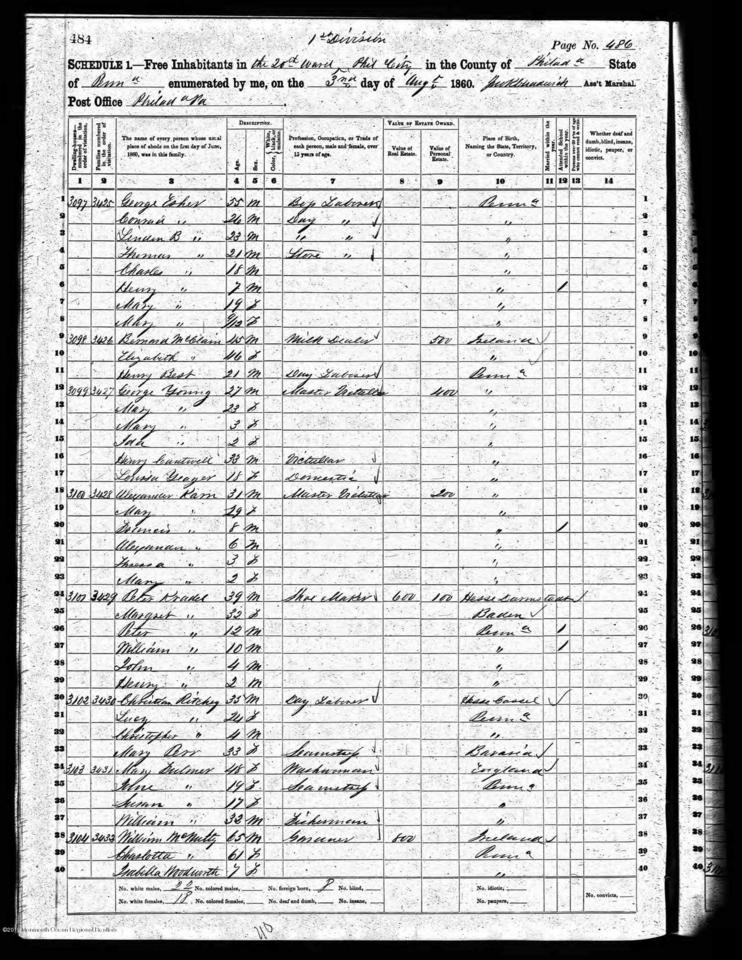 484
1st Division
Page No. 486
SCHEDULE 1.—Free Inhabitants in the 20th Ward Phil City in the County of Philad a State
of Penn a enumerated by me, on the 3nd day of Augt 1860. Ass't Marshal.
Post Office Philad a Pa
Dwelling-houses—numbered in the order of visitation.
Families numbered in the order of visitation.
The name of every person whose usual place of abode on the first day of June, 1860, was in this family.
DESCRIPTION.
Age.
Sex.
Color, {White, black, or mulatto.
Profession, Occupation, or Trade of each person, male and female, over 15 years of age.
VALUE OF ESTATE OWNED.
Value of Real Estate.
Value of Personal Estate.
Place of Birth, Naming the State, Territory, or Country.
Married within the year.
Attended School within the year.
Whether deaf and dumb, blind, insane, idiotic, pauper, or convict.
1 2 3 4 5 6 7 8 9 10 11 12 13 14
1 3097 3425 George Esher 55 M Penn a 1
2 Conrad " 26 M Day " " 2
3 Linden B " 23 M " " " 3
4 Thomas " 21 M Store " " 4
5 Charles " 18 M " 5
6 Henry " 7 M " 1 6
7 Mary " 19 F " 7
8 Mary " F " 8
9 3098 3426 Bernard McClain 45 M Milk Dealer 500 Ireland 9
10 Elizabeth " 46 F " 10
11 Henry Best 21 M Day Laborer Penn a 11
12 3099 3427 George Young 27 M Master Victuller 400 " 12
13 Mary " 23 F " 13
14 Mary " 3 F " 14
15 Ida " 2 F " 15
16 Henry Cantwell 33 M Victuller " 16
17 Louisa Yeager 18 F Domestic " 17
18 3100 3428 Alexander Karn 31 M Master Victuller 200 " 18
19 Mary " 29 F " 19
20 " 8 M " 1 20
21 Alexander " 6 M " 21
22 " 3 F " 22
23 Mary " 2 F " 23
24 3101 3429 Peter Kradel 39 M Shoe Maker 600 100 Hesse Darmstadt 24
25 Margret " 32 F Baden 25
26 Peter " 12 M Penn a 1 26
27 William " 10 M " 1 27
28 John " 4 M " 28
29 Henry " 2 M " 29
30 3102 3430 Christian Ritchey 35 M Day Laborer Hesse Cassel 30
31 Lucy " 24 F Penn a 31
32 Christopher " 4 M " 32
33 Mary 33 F Seamstress Bavaria 33
34 3103 3431 Mary Fulmer 48 F Washwoman England 34
35 19 F Seamstress Penn a 35
36 Susan " 17 F " 36
37 William " 32 M Fisherman " 37
38 3104 3432 William McNutty 65 M Gardner 800 Ireland 38
39 Charlotta " 61 F Penn a 39
40 Isabella Woodworth 7 F " 40
No. white males, 22 No. colored males, No. foreign born, 8 No. blind, No. idiotic, No. convicts,
No. white females, 18 No. colored females, No. deaf and dumb, No. insane, No. paupers,